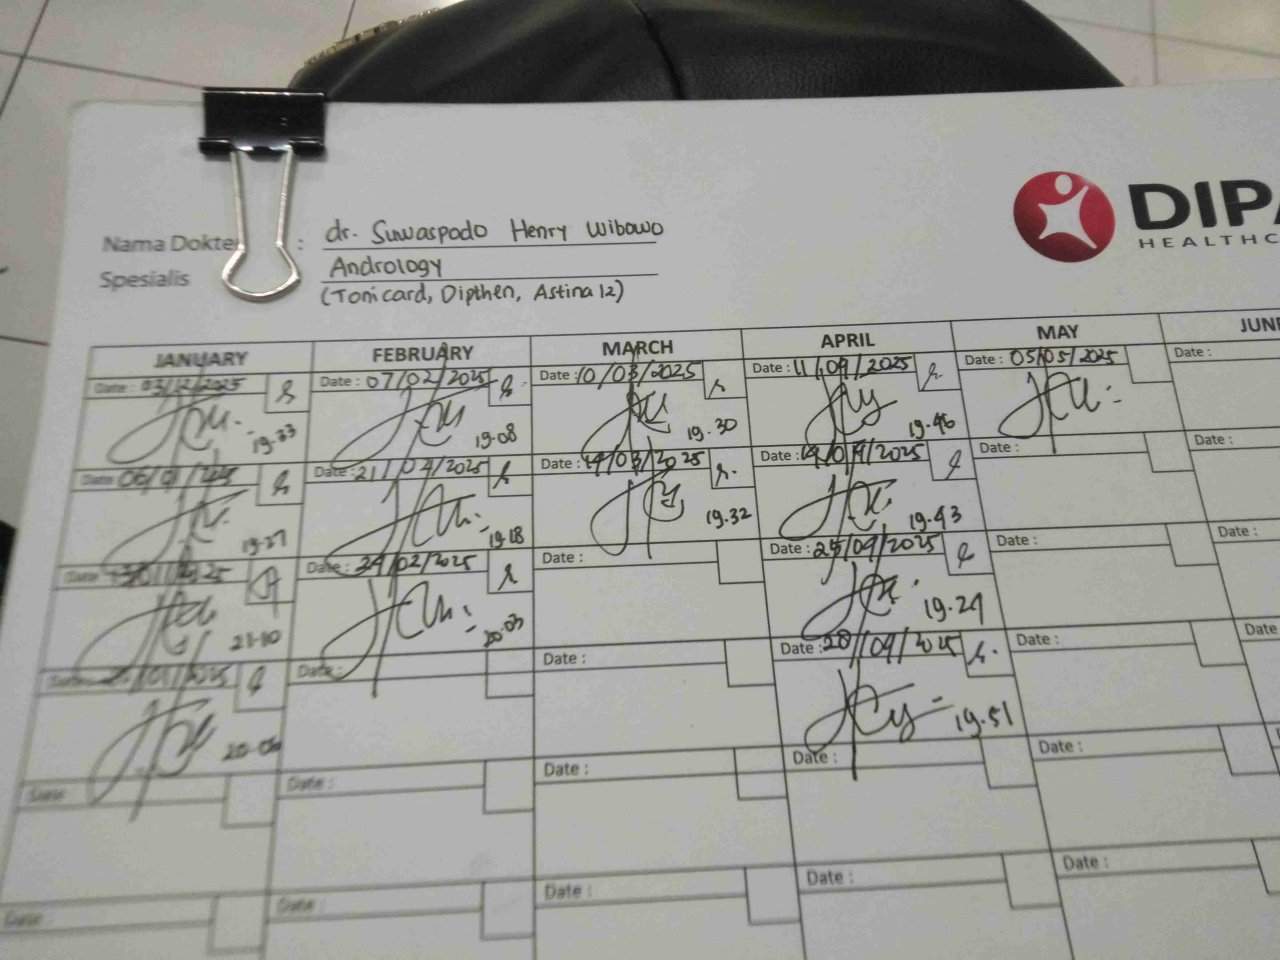 Nama Dokte :
dr. Suwaspodo Henry Wibowo
Spesialis
Andrology
(Tonicard, Dipthen, Astina 12)
DIPA
HEALTHC
JANUARY FEBRUARY MARCH APRIL MAY JUNE
Date : 03/12/2025 Date : 07/02/2025 Date : 10/03/2025 Date : 11/09/2025 Date : 05/05/2025 Date :
19.33 19.08 19.30 19.46
Date : 06/01/2025 Date : 21/04/2025 Date : 19/03/2025 Date : 19/09/2025 Date : Date :
19.27 19.18 19.32 19.43
Date : Date : 24/02/2025 Date : Date : 25/09/2025 Date : Date :
21.10 20.03 19.29
Date : Date : Date : Date : 28/09/2025 Date : Date
19.51
Date Date : Date : Date : Date :
Date : Date : Date : Date : Date :